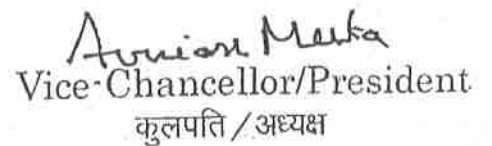 Vice-Chancellor/President
कुलपति / अध्यक्ष